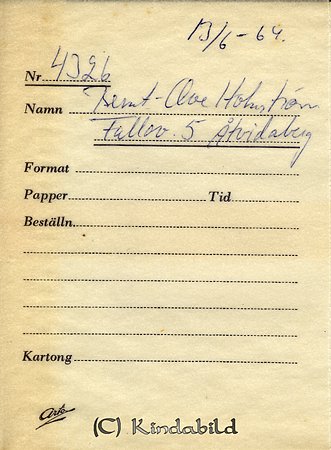 13/6-64.
Nr 4326
Namn Bernt-Ove Holmström
Fallov. 5 Åtvidaberg
Format
Papper Tid
Beställn.
Kartong
(C) Kindabild